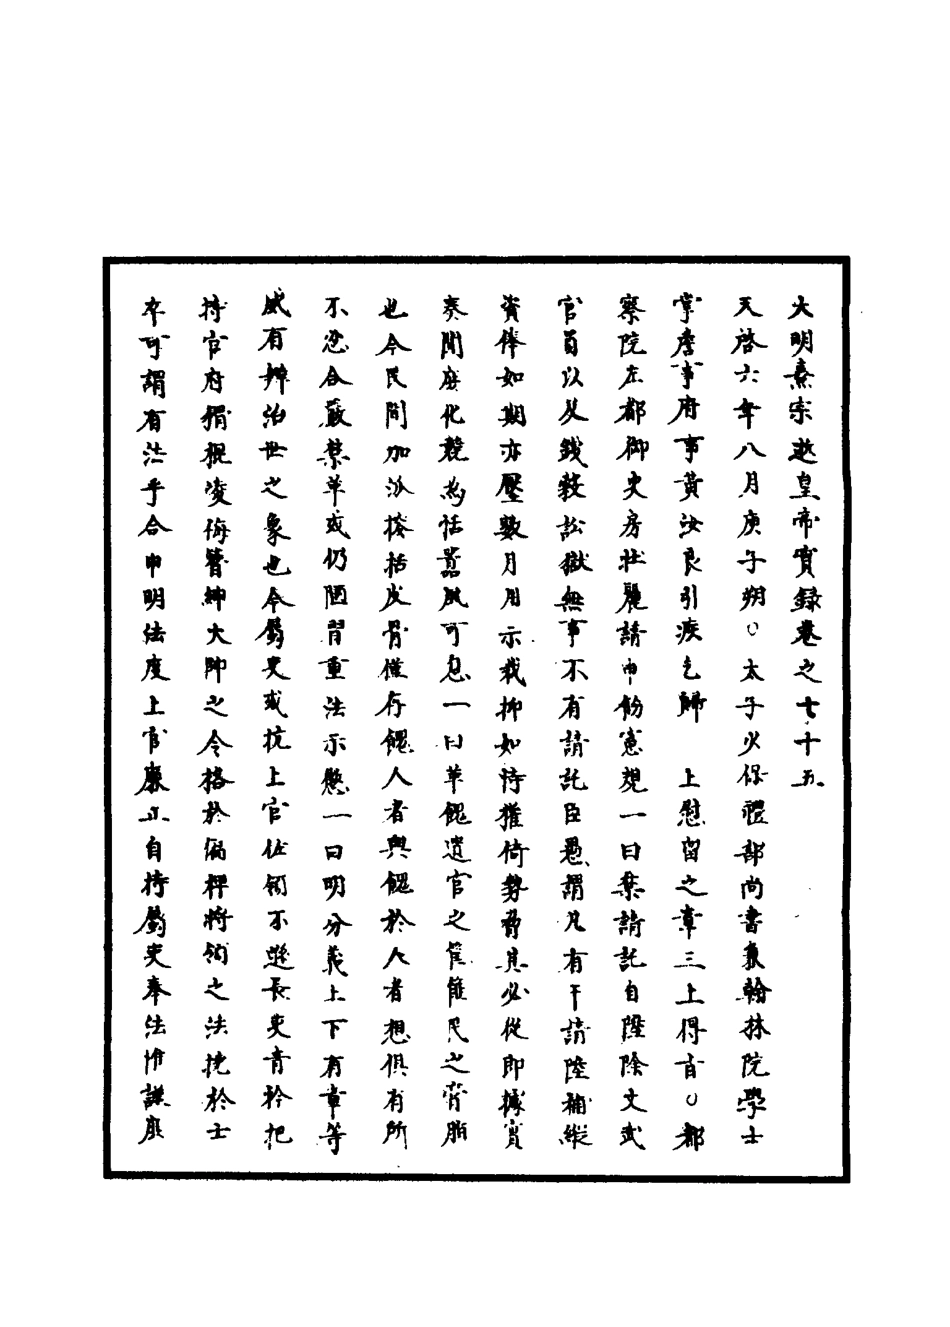 大明熹宗悊皇帝實録卷之七十五
天啓六年八月庚子朔○太子少保禮部尚書兼翰林院學士
掌詹事府事黃汝良引疾乞歸　上慰留之章三上得旨○都
察院左都御史房壯麗請申飭憲規一曰禁請託自陞除文武
官員以及錢穀訟獄無事不有請託臣愚謂凡有干請陸補縱
資俸如期亦壓數月用示裁抑如恃權倚勢脅其必從即據實
奏聞庶化競為恬囂風可息一曰革餽遺官之筐篚民之膏脂
也今民間加派搭括皮骨僅存餽人者與餽於人者想俱有所
不忍合嚴禁革或仍陋習重法示懲一曰明分義上下有章等
威有辨治世之象也今屬吏或抗上官佐領不遜長吏青衿把
持官府猾棍凌侮簪紳大帥之令格於偏裨將領之法撓於士
卒可謂有法乎合申明法度上官廉正自持屬吏奉法惟謹庶